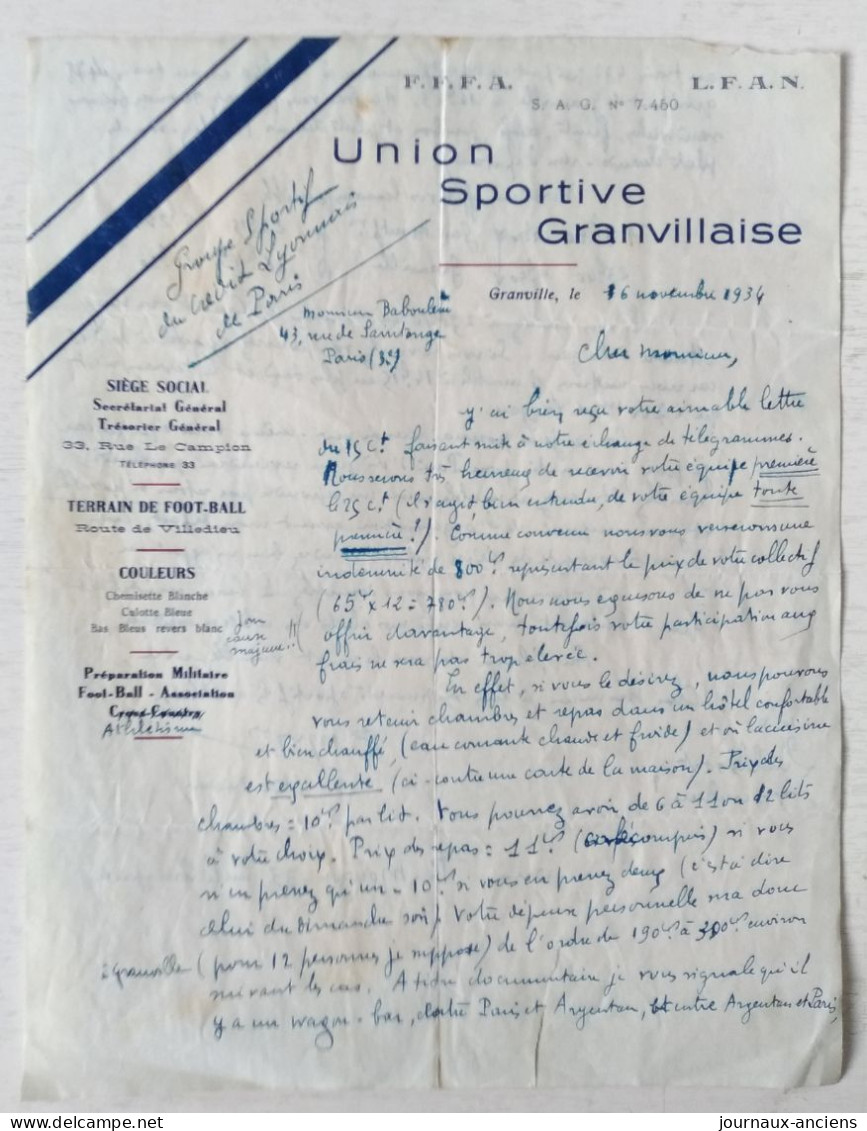 F.F.F.A. L.F.A.N.
S.A.G. Nº 7.460
Union
Sportive
Granvillaise
Groupe Sportif
du Crédit Lyonnais
de Paris
Granville, le 16 novembre 1934
Monsieur Babouleine
43, rue de Saintonge
Paris (3e)
Cher Monsieur,
SIÈGE SOCIAL
Secrétariat Général
Trésorier Général
33, Rue Le Campion
TÉLÉPHONE 33
TERRAIN DE FOOT-BALL
Route de Villedieu
COULEURS
Chemisette Blanche
Culotte Bleue
Bas Bleus revers blanc
force
majeure !!
Préparation Militaire
Foot-Ball - Association
Cross-Country
Athlétisme
J'ai bien reçu votre aimable lettre
du 15 ct faisant suite à notre échange de télégrammes.
Nous serons très heureux de recevoir votre équipe première
le 25 ct (il s'agit, bien entendu, de votre équipe toute
première !). Comme convenu nous vous verserons une
indemnité de 800 frs représentant le prix de votre collectif
(65 frs x 12 = 780 frs). Nous nous excusons de ne pas vous
offrir davantage, toutefois votre participation aux
frais ne sera pas trop élevée.
En effet, si vous le désirez, nous pouvons
vous retenir chambres et repas dans un hôtel confortable
et bien chauffé, (eau courante chaude et froide) et où la cuisine
est excellente (ci-contre une carte de la maison). Prix des
chambres = 10 frs par lit. Vous pourrez avoir de 6 à 11 ou 12 lits
à votre choix. Prix des repas = 11 frs (café compris) si vous
n'en prenez qu'un = 10 frs si vous en prenez deux (c'est à dire
celui du Dimanche soir). Votre dépense personnelle sera donc
à Granville (pour 12 personnes je suppose) de l'ordre de 190 frs à 300 frs environ
suivant les cas. A titre documentaire je vous signale qu'il
y a un wagon-bar, entre Paris et Argentan, et entre Argentan et Paris,
journaux-anciens